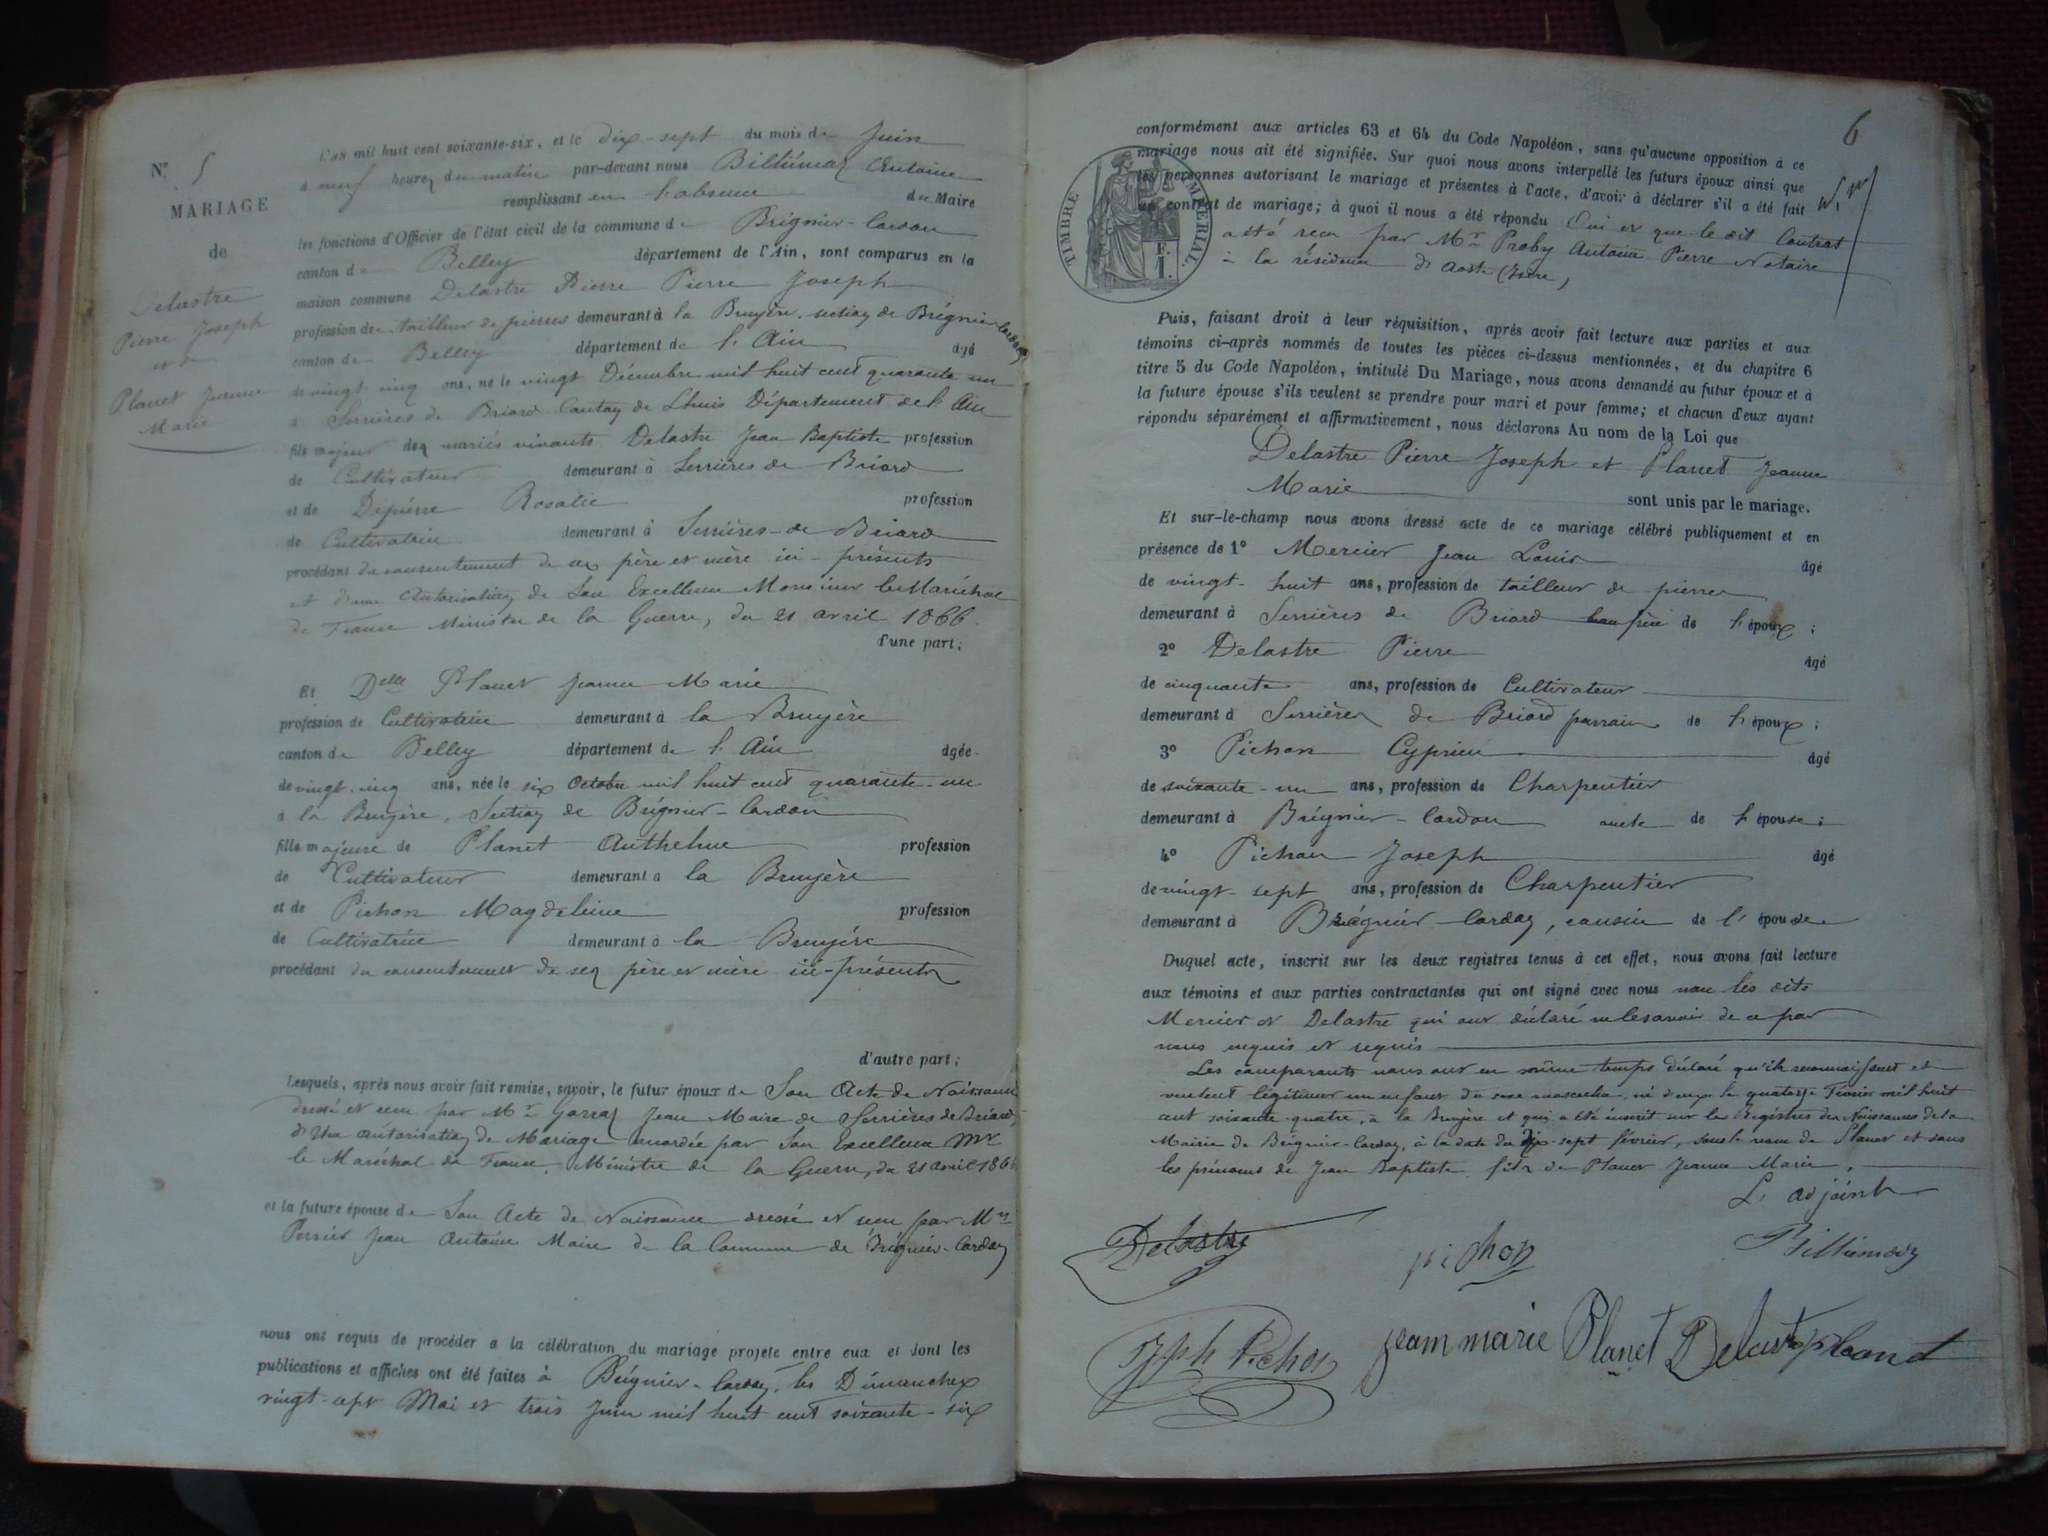 N° 5
MARIAGE
de
Delastre
Pierre Joseph
et de
Planet Jeanne
Marie
L'an mil huit cent soixante-six, et le dix-sept du mois de Juin
à neuf heures du matin par-devant nous Billiémaz Antoine
remplissant en l'absence du Maire
les fonctions d'Officier de l'état civil de la commune de Brégnier-Cordon
canton de Belley département de l'Ain, sont comparus en la
maison commune Delastre Pierre Pierre Joseph
profession de tailleur de pierres demeurant à la Bruyère, section de Brégnier Cordon
canton de Belley département de l'Ain âgé
de vingt-cinq ans, né le vingt Décembre mil huit cent quarante un
à Serrières de Briord Canton de Lhuis Département de l'Ain
fils majeur des mariés vivants Delastre Jean Baptiste profession
de Cultivateur demeurant à Serrières de Briord
et de Dépierre Rosalie profession
de Cultivatrice demeurant à Serrières-de Briord
procédant du consentement de ses père et mère ici-présents
et d'une Autorisation de Son Excellence Monsieur le Maréchal
de France Ministre de la Guerre, du 21 avril 1866.
d'une part;
Et Delle Planet Jeanne Marie
profession de Cultivatrice demeurant à la Bruyère
canton de Belley département de l'Ain âgée
de vingt-cinq ans, née le six Octobre mil huit cent quarante-un
à la Bruyère, Section de Brégnier-Cordon
fille majeure de Planet Anthelme profession
de Cultivateur demeurant à la Bruyère
et de Pichon Magdeleine profession
de Cultivatrice demeurant à la Bruyère
procédant du consentement de ses père et mère ici-présents
d'autre part;
Lesquels, après nous avoir fait remise, savoir, le futur époux de Son Acte de Naissance
dressé et reçu par Mr Jean Maire de Serrières de Briord,
d'une autorisation de Mariage accordée par Son Excellence Mr
le Maréchal de France, Ministre de la Guerre, du 21 avril 1866
et la future épouse de Son Acte de Naissance dressé et reçu par Mr
Perrier Jean Antoine Maire de la Commune de Brégnier-Cordon
nous ont requis de procéder à la célébration du mariage projeté entre eux et dont les
publications et affiches ont été faites à Brégnier-Cordon, les Dimanches
vingt-sept Mai et trois Juin mil huit cent soixante-six
6
conformément aux articles 63 et 64 du Code Napoléon, sans qu'aucune opposition à ce
mariage nous ait été signifiée. Sur quoi nous avons interpellé les futurs époux ainsi que
les personnes autorisant le mariage et présentes à l'acte, d'avoir à déclarer s'il a été fait
un contrat de mariage; à quoi il nous a été répondu Oui et que le dit Contrat
a été reçu par Mr Proby Antoine Pierre Notaire
à la résidence d'Aoste (Isère)
TIMBRE IMPÉRIAL.
1 F.
Puis, faisant droit à leur réquisition, après avoir fait lecture aux parties et aux
témoins ci-après nommés de toutes les pièces ci-dessus mentionnées, et du chapitre 6
titre 5 du Code Napoléon, intitulé Du Mariage, nous avons demandé au futur époux et à
la future épouse s'ils veulent se prendre pour mari et pour femme; et chacun d'eux ayant
répondu séparément et affirmativement, nous déclarons Au nom de la Loi que
Delastre Pierre Joseph et Planet Jeanne
Marie sont unis par le mariage.
Et sur-le-champ nous avons dressé acte de ce mariage célébré publiquement et en
présence de 1° Mercier Jean Louis âgé
de vingt-huit ans, profession de tailleur de pierres
demeurant à Serrières de Briord beau frère de l'époux;
2° Delastre Pierre âgé
de cinquante ans, profession de Cultivateur
demeurant à Serrières de Briord parrain de l'époux;
3° Pichon Cyprien âgé
de soixante-un ans, profession de Charpentier
demeurant à Brégnier-Cordon oncle de l'épouse;
4° Pichon Joseph âgé
de vingt-sept ans, profession de Charpentier
demeurant à Brégnier-Cordon, cousin de l'épouse
Duquel acte, inscrit sur les deux registres tenus à cet effet, nous avons fait lecture
aux témoins et aux parties contractantes qui ont signé avec nous non les dits
Mercier et Delastre qui ont déclaré ne le savoir de ce par
nous enquis et requis
Les comparants nous ont en même temps déclaré qu'ils reconnaissent et
veulent légitimer un enfant du sexe masculin, né d'eux le quatorze Février mil huit
cent soixante quatre, à la Bruyère et qui a été inscrit sur les Registres des Naissances de la
Mairie de Brégnier-Cordon, à la date du dix-sept février, sous le nom de Planet et sous
les prénoms de Jean Baptiste fils de Planet Jeanne Marie.
L'adjoint
Delastre pichon Billiemaz
Jph Pichon jeanmarie Planet Delastre planet